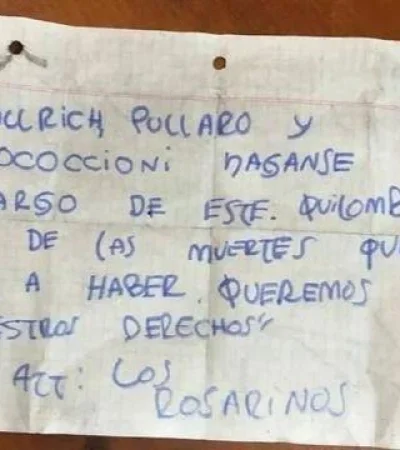 LLRICH, PULLARO Y
OCOCCIONI HAGANSE
ARGO DE ESTE. QUILOMB
DE LAS MUERTES QU
A HABER. QUEREMOS
ESTROS DERECHOS"
ATT: LOS
ROSARINOS